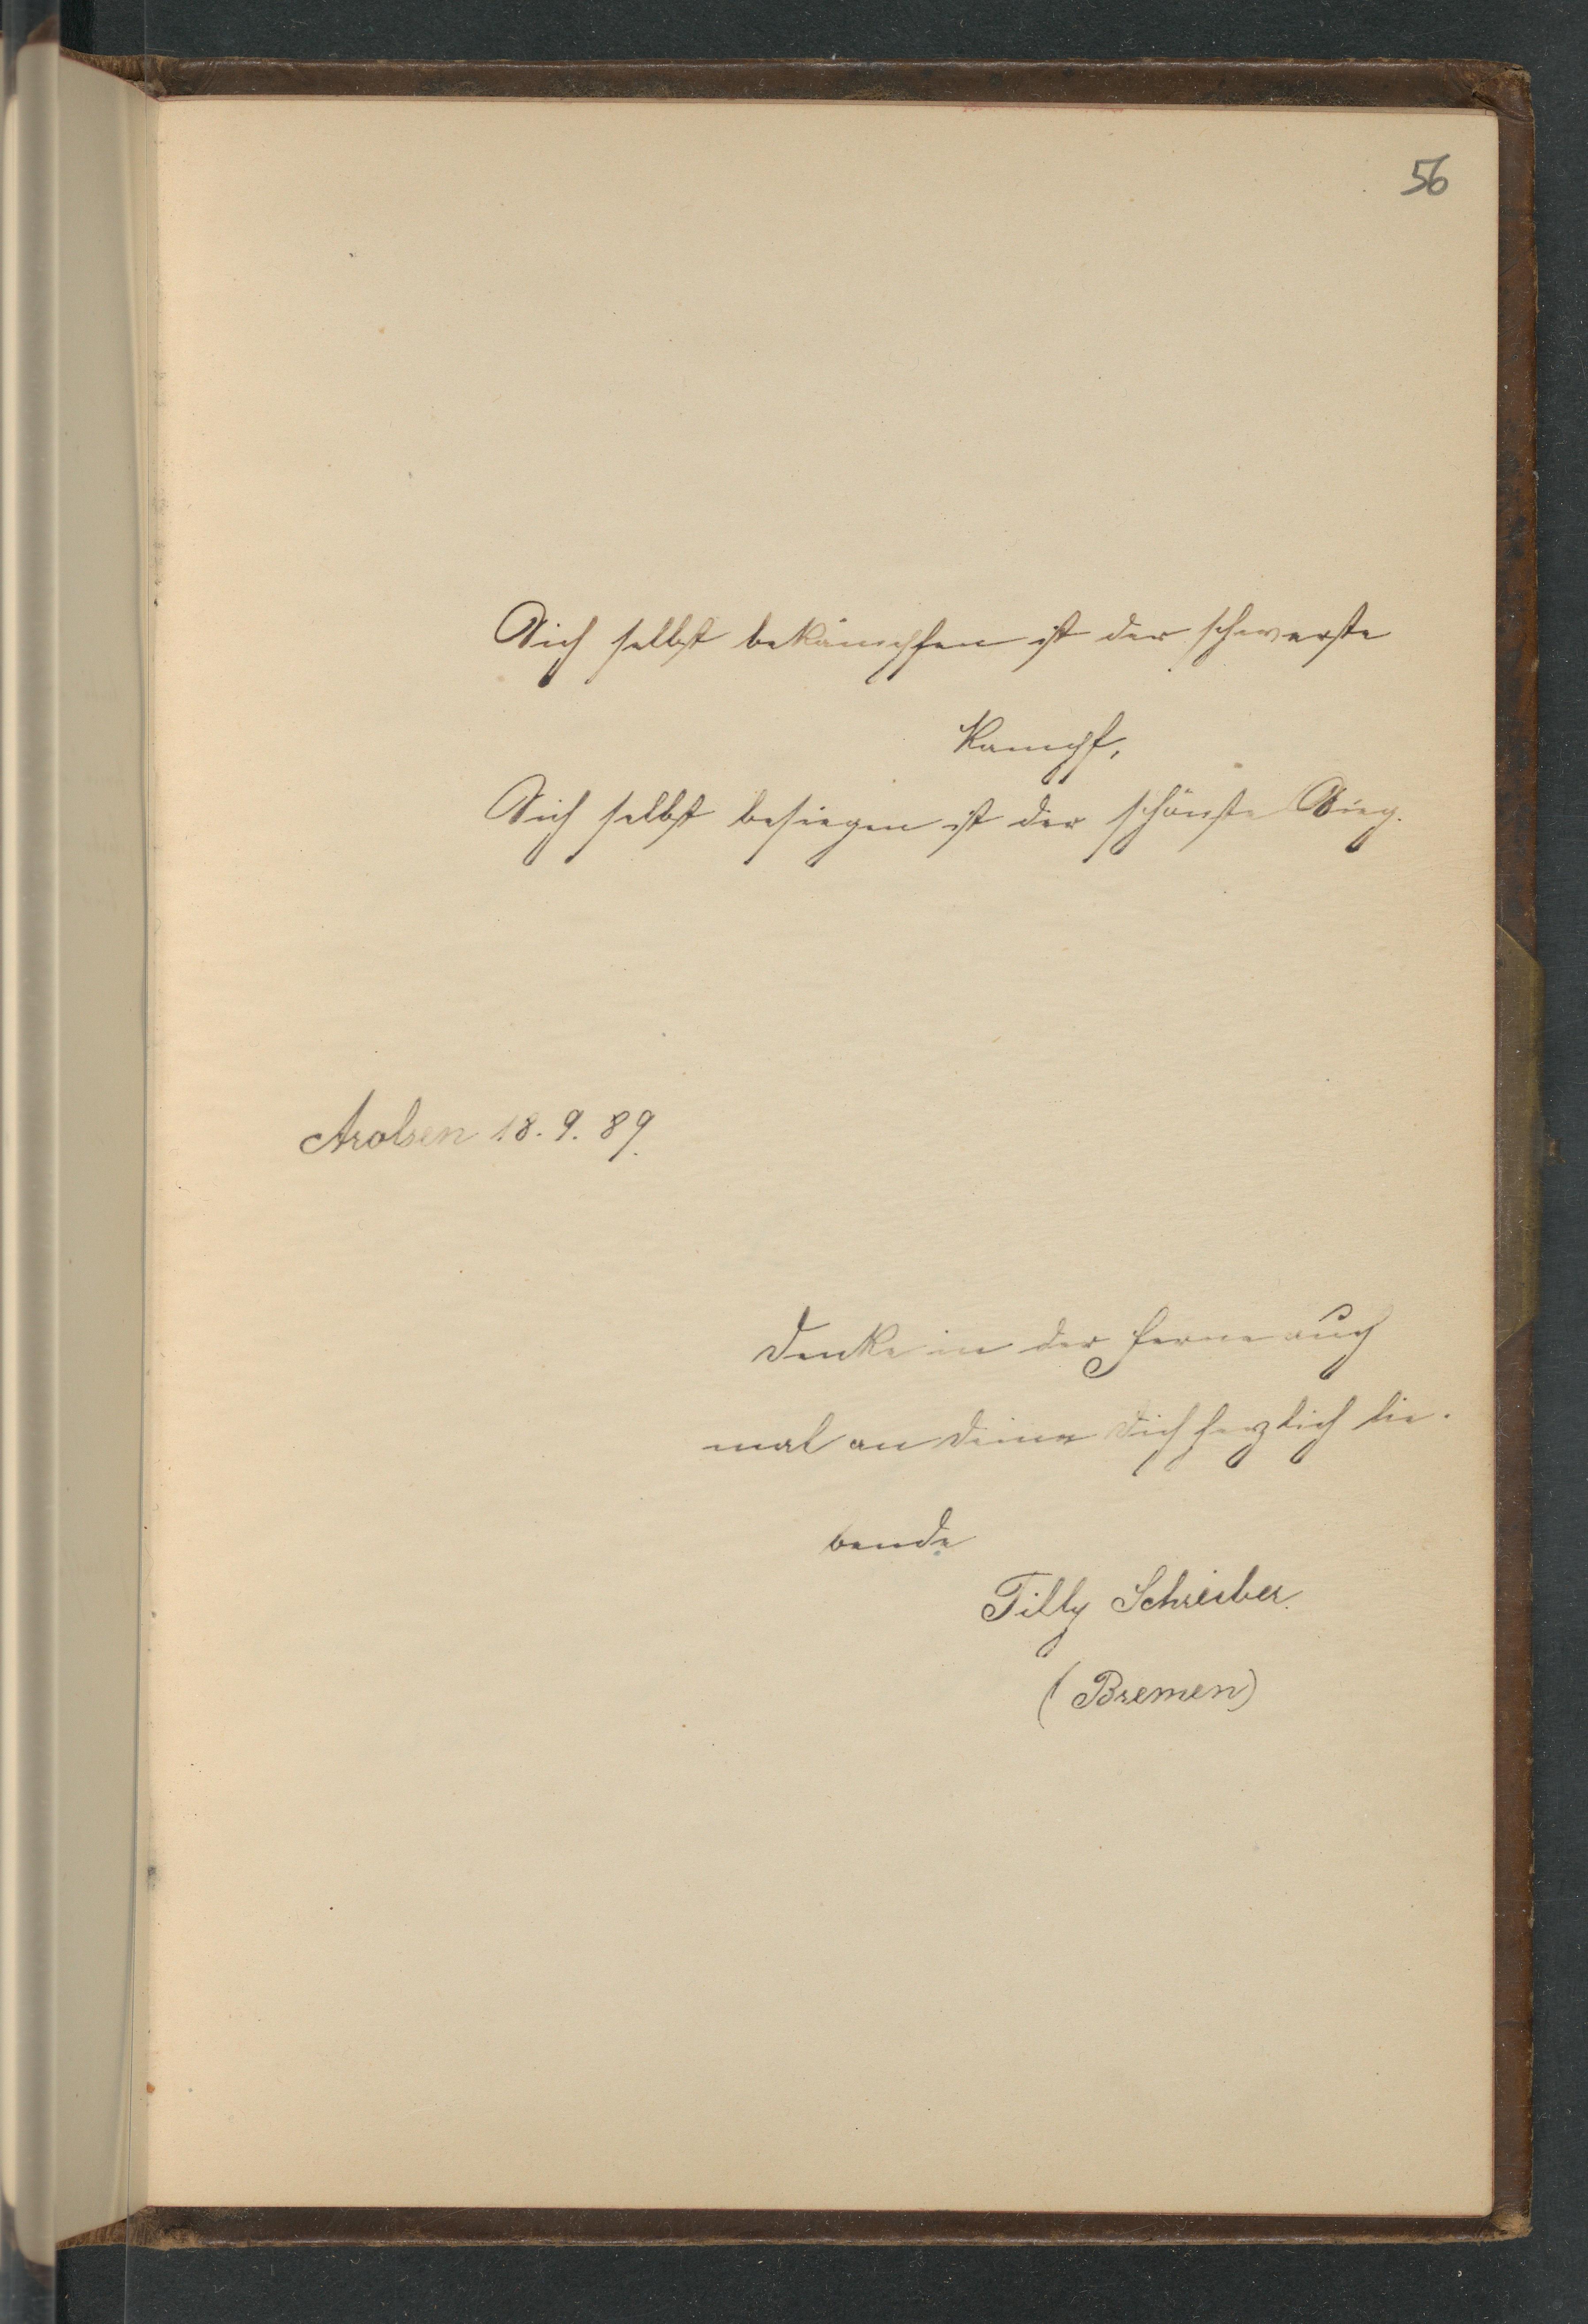 56
Sich selbst bekämpfen ist der schwerste
Kampf,
Sich selbst besiegen ist der schönste Sieg.
Arolsen 18. 9. 89.
Denke in der Ferne auch
mal an deine Dich herzlich lie-
bende
Tilly Schreiber.
(Bremen)